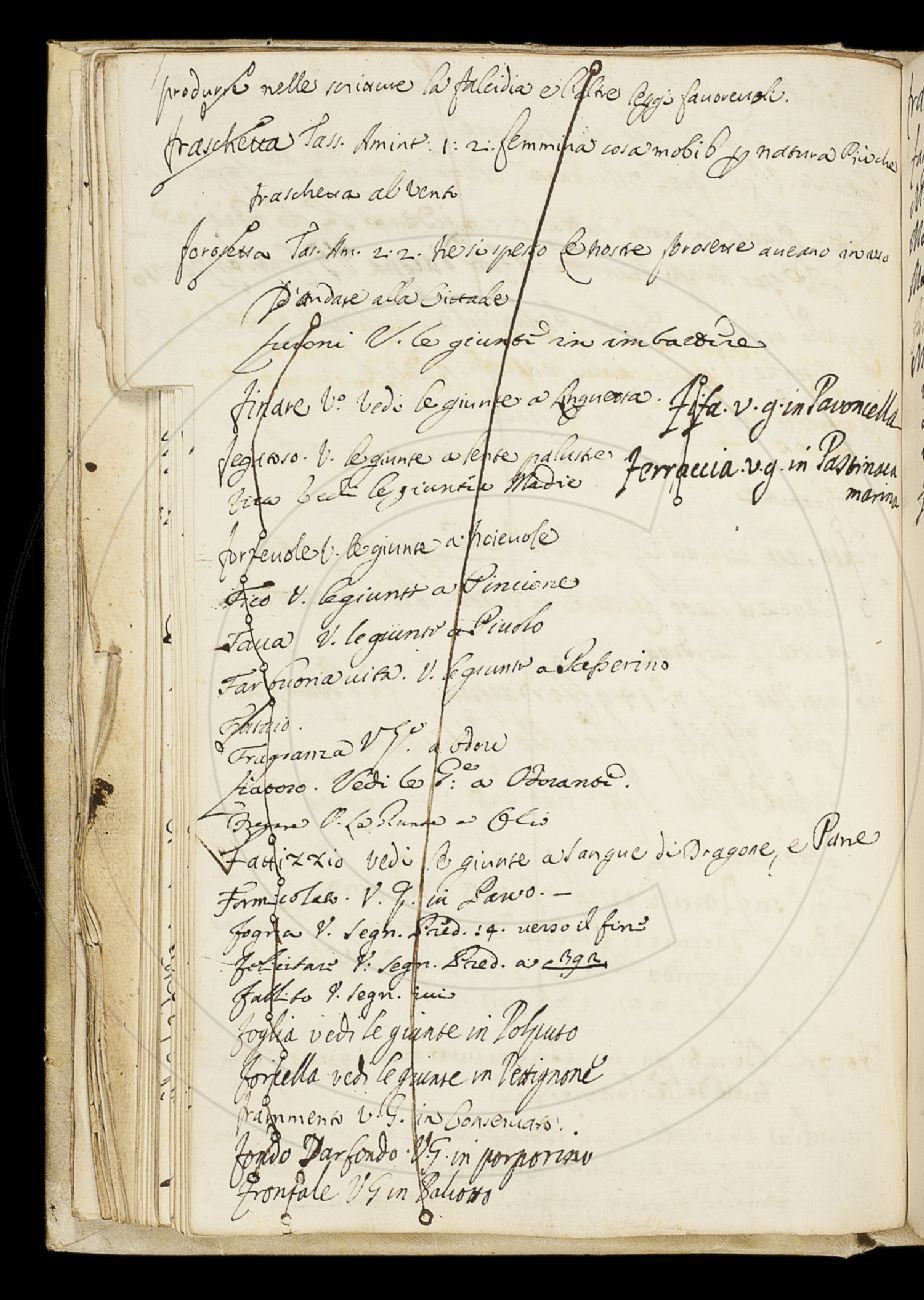 produrre nelle scritture la falcidia e l'altre leggi favorevole.
fraschetta Tass. Amint. 1: 2: femmina cosa mobil p natura Più che
fraschetta al vento
forosetta Tas. Am. 2: 2. le nostre forosette aveano in uso
D'andare alla Cittade
V. le giunte in imbastire
finare Vo. Vedi le giunte a
fifa. v. g. in Pavoncella
fegatoso. V. le giunte a lente palustre
ferraccia. v. g. in Pastinaca
le giunte a Madie
marina
forzevole V. le giunte a
Fico V. le giunte a Pincione
Faua V. le giunte a Piuolo
Far buona vita. V. le giunte a Passerino
Fragranza V. a odore
Fiatoso. Vedi le G.e a Odorante.
V. Le Giunte a Olio
Fattizzio vedi le giunte a Sangue di Dragone, e Pane
Formicolare. V. G. in
fogna V. segn. Pred. 14. verso il fine
felicitare V. segn. Pred. a c 392
fallito V. segn. iui
foglia vedi le giunte in Polputo
forcella vedi le giunte in Pettignone
frammento V. G. in Conservare.
fondo Dar fondo. V. G. in porporino
frontale V G in